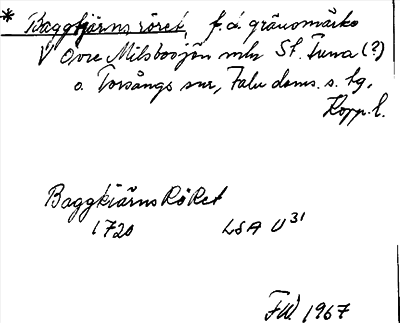 * Baggtjärns röret, f.d. gränsmärke
V Övre Milsbosjön mln St. Tuna (?)
o. Torsångs snr, Falu doms. s. tg,
Kopp. l.
Baggkiärns RöRet
1720 LSA U31
FW. 1967